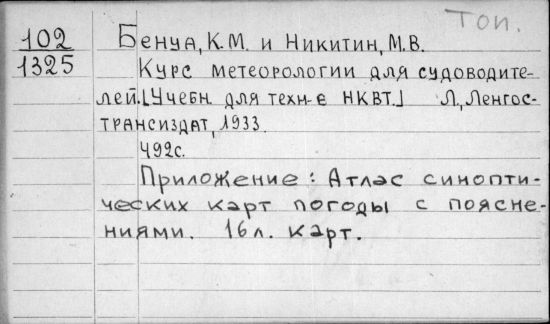 Топ.
102
1325
Бенуа, К.М. и Никитин, М.В.
Курс метеорологии для судоводите-
лей.[Учебн. для техн-е НКВТ.] Л., Ленгос-
трансиздат, 1933.
492с.
Приложение: Атлас синопти-
ческих карт погоды с поясне-
ниями. 16л. карт.